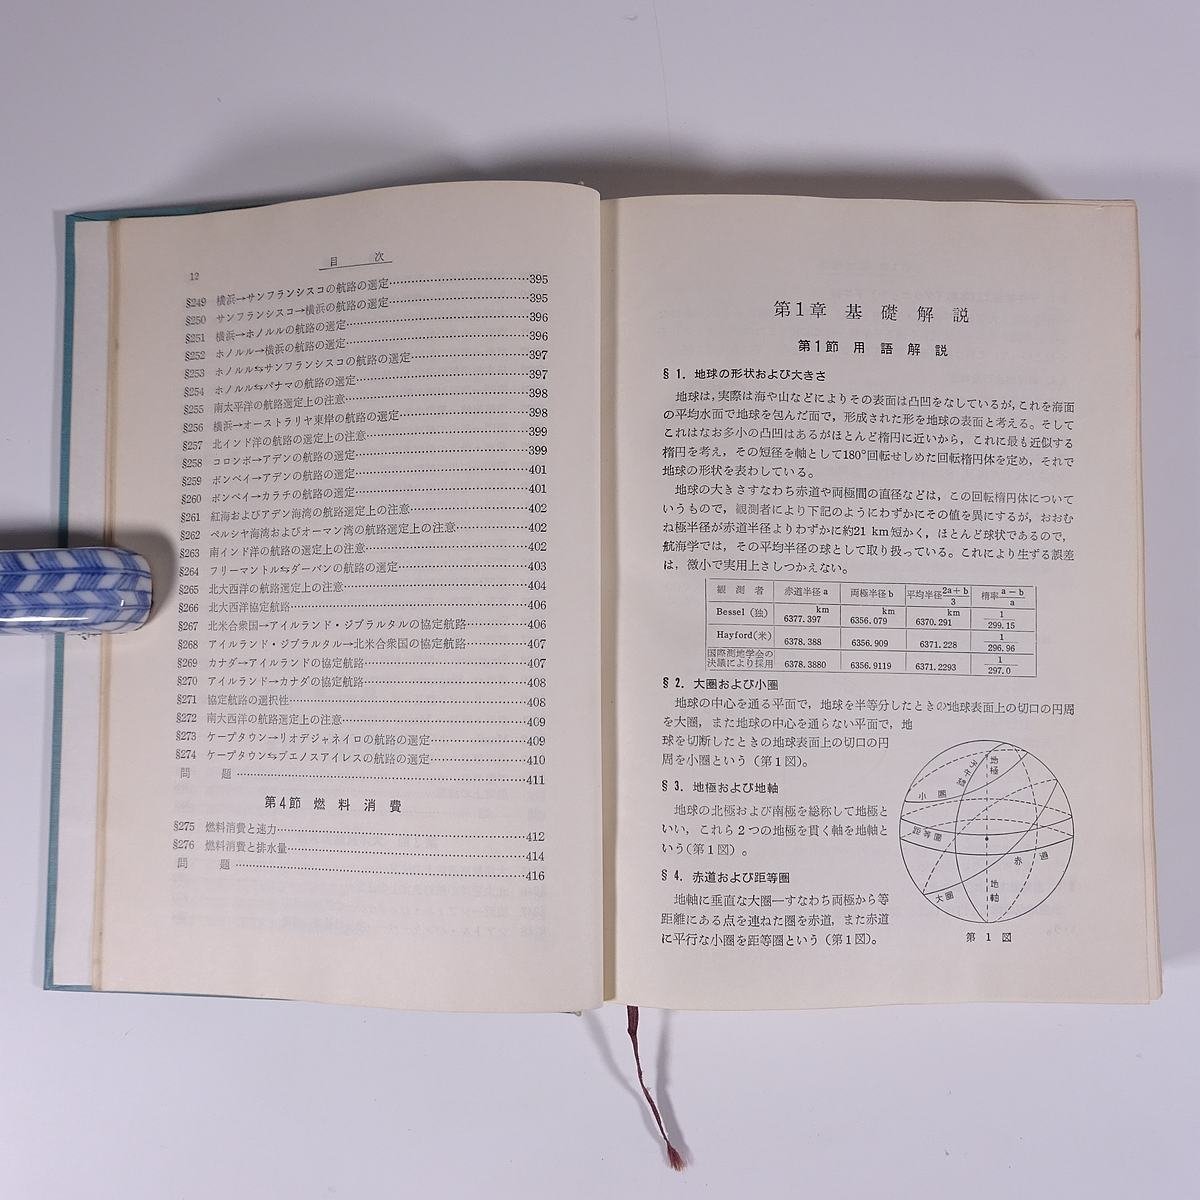 12
目次
§249 横浜→サンフランシスコの航路の選定 395
§250 サンフランシスコ→横浜の航路の選定 395
§251 横浜→ホノルルの航路の選定 396
§252 ホノルル→横浜の航路の選定 396
§253 ホノルル⇆サンフランシスコの航路の選定 397
§254 ホノルル⇆パナマの航路の選定 397
§255 南太平洋の航路選定上の注意 398
§256 横浜→オーストラリヤ東岸の航路の選定 398
§257 北インド洋の航路の選定上の注意 399
§258 コロンボ→アデンの航路の選定 399
§259 ボンベイ→アデンの航路の選定 401
§260 ボンベイ→カラチの航路の選定 401
§261 紅海およびアデン海湾の航路選定上の注意 402
§262 ペルシヤ海湾およびオーマン湾の航路選定上の注意 402
§263 南インド洋の航路の選定上の注意 402
§264 フリーマントル⇆ダーバンの航路の選定 403
§265 北大西洋の航路選定上の注意 404
§266 北大西洋協定航路 406
§267 北米合衆国→アイルランド・ジブラルタルの協定航路 406
§268 アイルランド・ジブラルタル→北米合衆国の協定航路 407
§269 カナダ→アイルランドの協定航路 407
§270 アイルランド→カナダの協定航路 408
§271 協定航路の選択性 408
§272 南大西洋の航路選定上の注意 409
§273 ケープタウン→リオデジャネイロの航路の選定 409
§274 ケープタウン⇆ブエノスアイレスの航路の選定 410
問題 411
第4節 燃料消費
§275 燃料消費と速力 412
§276 燃料消費と排水量 414
問題 416
第1章 基礎解説
第1節 用語解説
§ 1. 地球の形状および大きさ
地球は,実際は海や山などによりその表面は凸凹をなしているが,これを海面
の平均水面で地球を包んだ面で, 形成された形を地球の表面と考える。そして
これはなお多小の凸凹はあるがほとんど楕円に近いから, これに最も近似する
楕円を考え, その短径を軸として180°回転せしめた回転楕円体を定め, それで
地球の形状を表わしている。
地球の大きさすなわち赤道や両極間の直径などは, この回転楕円体について
いうもので, 観測者により下記のようにわずかにその値を異にするが, おおむ
ね極半径が赤道半径よりわずかに約21 km短かく, ほとんど球状であるので,
航海学では, その平均半径の球として取り扱っている。これにより生ずる誤差
は, 微小で実用上さしつかえない。
観測者 赤道半径 a 両極半径 b 平均半径 2a+b/3 楕率 a-b/a
Bessel (独) 6377.397 km 6356.079 km 6370.291 km 1/299.15
Hayford(米) 6378.388 6356.909 6371.228 1/296.96
国際測地学会の決議により採用 6378.3880 6356.9119 6371.2293 1/297.0
§ 2. 大圏および小圏
地球の中心を通る平面で, 地球を半等分したときの地球表面上の切口の円周
を大圏, また地球の中心を通らない平面で, 地
球を切断したときの地球表面上の切口の円
周を小圏という (第1図)。
§ 3. 地極および地軸
地球の北極および南極を総称して地極と
いい, これら2つの地極を貫く軸を地軸と
いう(第1図)。
§ 4. 赤道および距等圏
地軸に垂直な大圏—すなわち両極から等
距離にある点を連ねた圏を赤道, また赤道
に平行な小圏を距等圏という (第1図)。
地極
子午線
小圏
距等圏
赤道
大圏
地軸
第1図